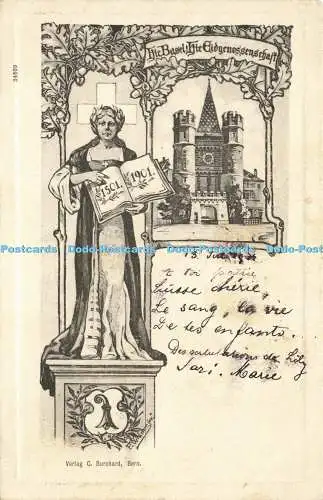 34899
Hie Basel! Hie Eidgenossenschaft
1501.
1901.
Postcards Dodo-Postcards Dodo-Postcards Dodo-Postcards
13. 
à toi patrie
Suisse chérie,
Le sang, la vie
De tes enfants.
Des salutations de
Marie
Verlag C. Burnhard, Bern.